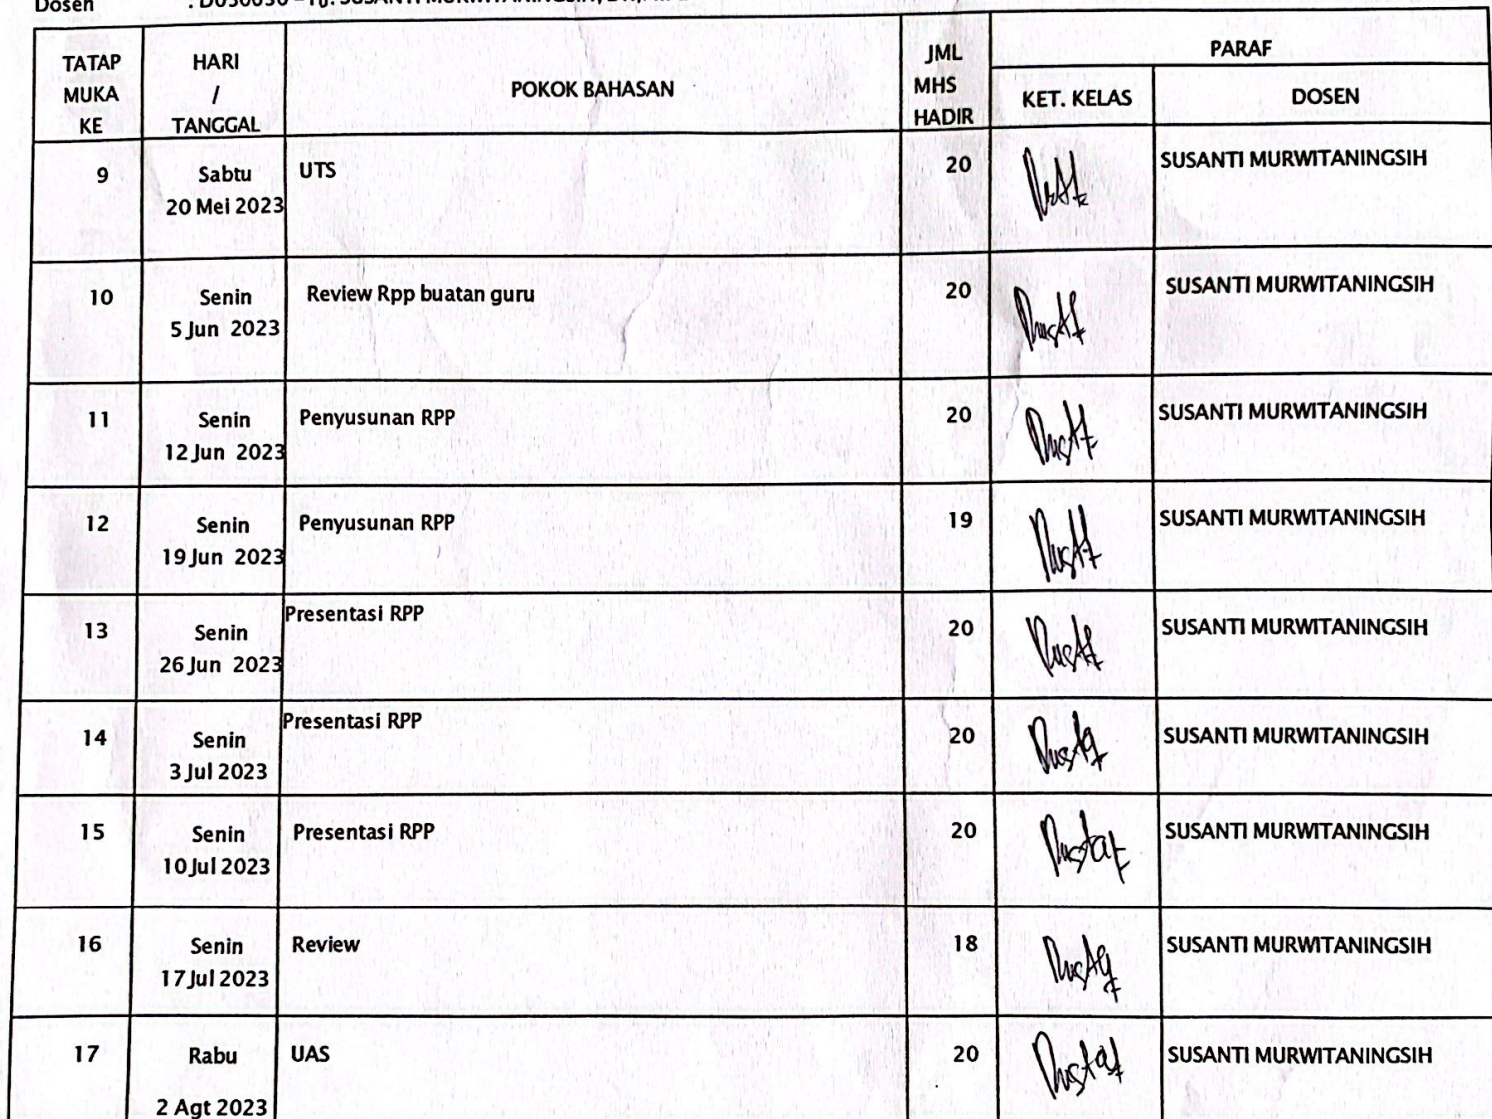 Dosen
TATAP MUKA KE
HARI / TANGGAL
POKOK BAHASAN
JML MHS HADIR
PARAF
KET. KELAS
DOSEN
9 Sabtu 20 Mei 2023 UTS 20 SUSANTI MURWITANINGSIH
10 Senin 5 Jun 2023 Review Rpp buatan guru 20 SUSANTI MURWITANINGSIH
11 Senin 12 Jun 2023 Penyusunan RPP 20 SUSANTI MURWITANINGSIH
12 Senin 19 Jun 2023 Penyusunan RPP 19 SUSANTI MURWITANINGSIH
13 Senin 26 Jun 2023 Presentasi RPP 20 SUSANTI MURWITANINGSIH
14 Senin 3 Jul 2023 Presentasi RPP 20 SUSANTI MURWITANINGSIH
15 Senin 10 Jul 2023 Presentasi RPP 20 SUSANTI MURWITANINGSIH
16 Senin 17 Jul 2023 Review 18 SUSANTI MURWITANINGSIH
17 Rabu 2 Agt 2023 UAS 20 SUSANTI MURWITANINGSIH